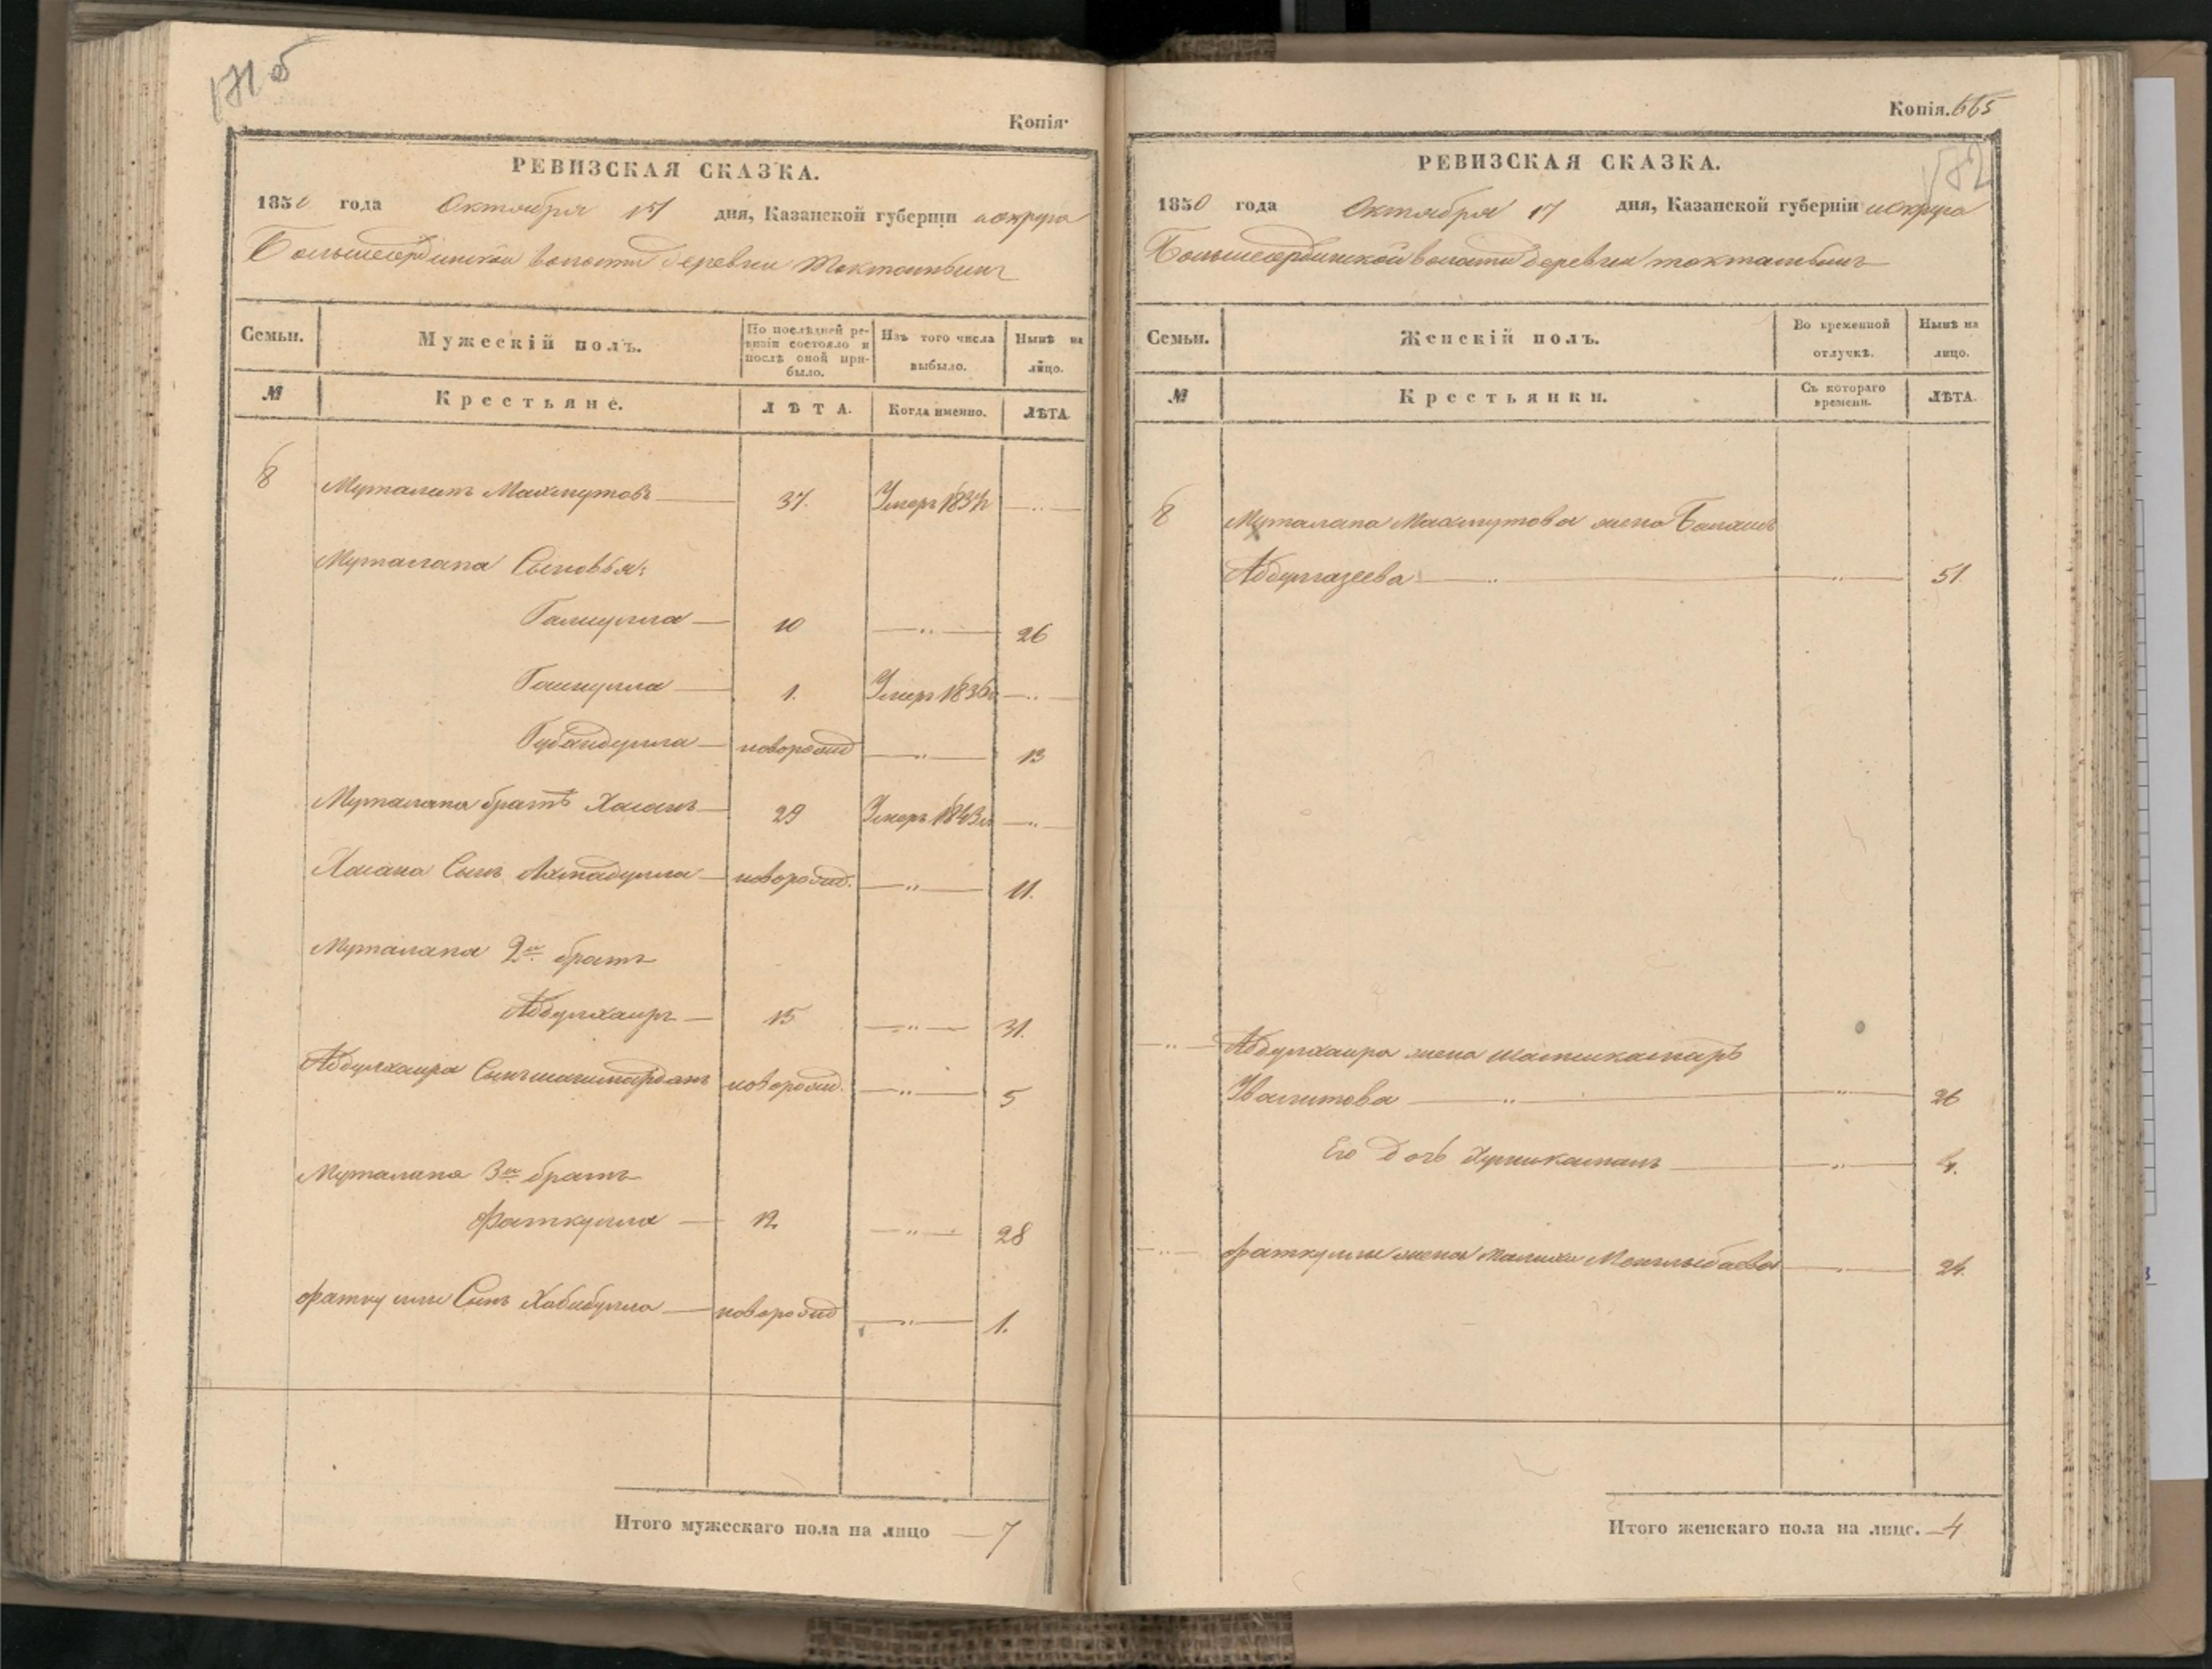 171 об
Копія.
РЕВИЗСКАЯ СКАЗКА.
1850 года Октября 17 дня, Казанской губерніи и округа
Большесердинской волости деревни Токтамышъ
Семьи. Мужескій полъ. По послѣдней ревизіи состояло и послѣ оной прибыло. Изъ того числа выбыло. Нынѣ на лицо.
№ Крестьяне. ЛѢТА. Когда именно. ЛѢТА.
8 Муталапъ Махмутовъ 37. Умеръ 1837
Муталапа Сыновья:
Галиулла 10 — 26
Гайнулла 1. Умеръ 1836
Губайдулла новорожд — 13
Муталапа братъ Хасанъ 29 Умеръ 1843
Хасана Сынъ Ахмадулла новорожд. — 11.
Муталапа 2й братъ
Абдулхаиръ 15 — 31.
Абдулхаира Сынъ шагимарданъ новорожд. — 5
Муталапа 3й братъ
Фаткулла 12 — 28
Фаткуллы Сынъ Хабибулла новорожд — 1.
Итого мужескаго пола на лицо — 7
Копія. 665
172
РЕВИЗСКАЯ СКАЗКА.
1850 года Октября 17 дня, Казанской губерніи и округа
Большесердинской волости деревни токтамышъ
Семьи. Женскій полъ. Во временной отлучкѣ. Нынѣ на лицо.
№ Крестьянки. Съ котораго времени. ЛѢТА.
8 Муталапа Махмутова жена
Абдулгазеева — 51.
Абдулхаира жена
— 26
Его дочь — 4.
Фаткуллы жена Малиха Менглыбаева — 24.
Итого женскаго пола на лицо. — 4